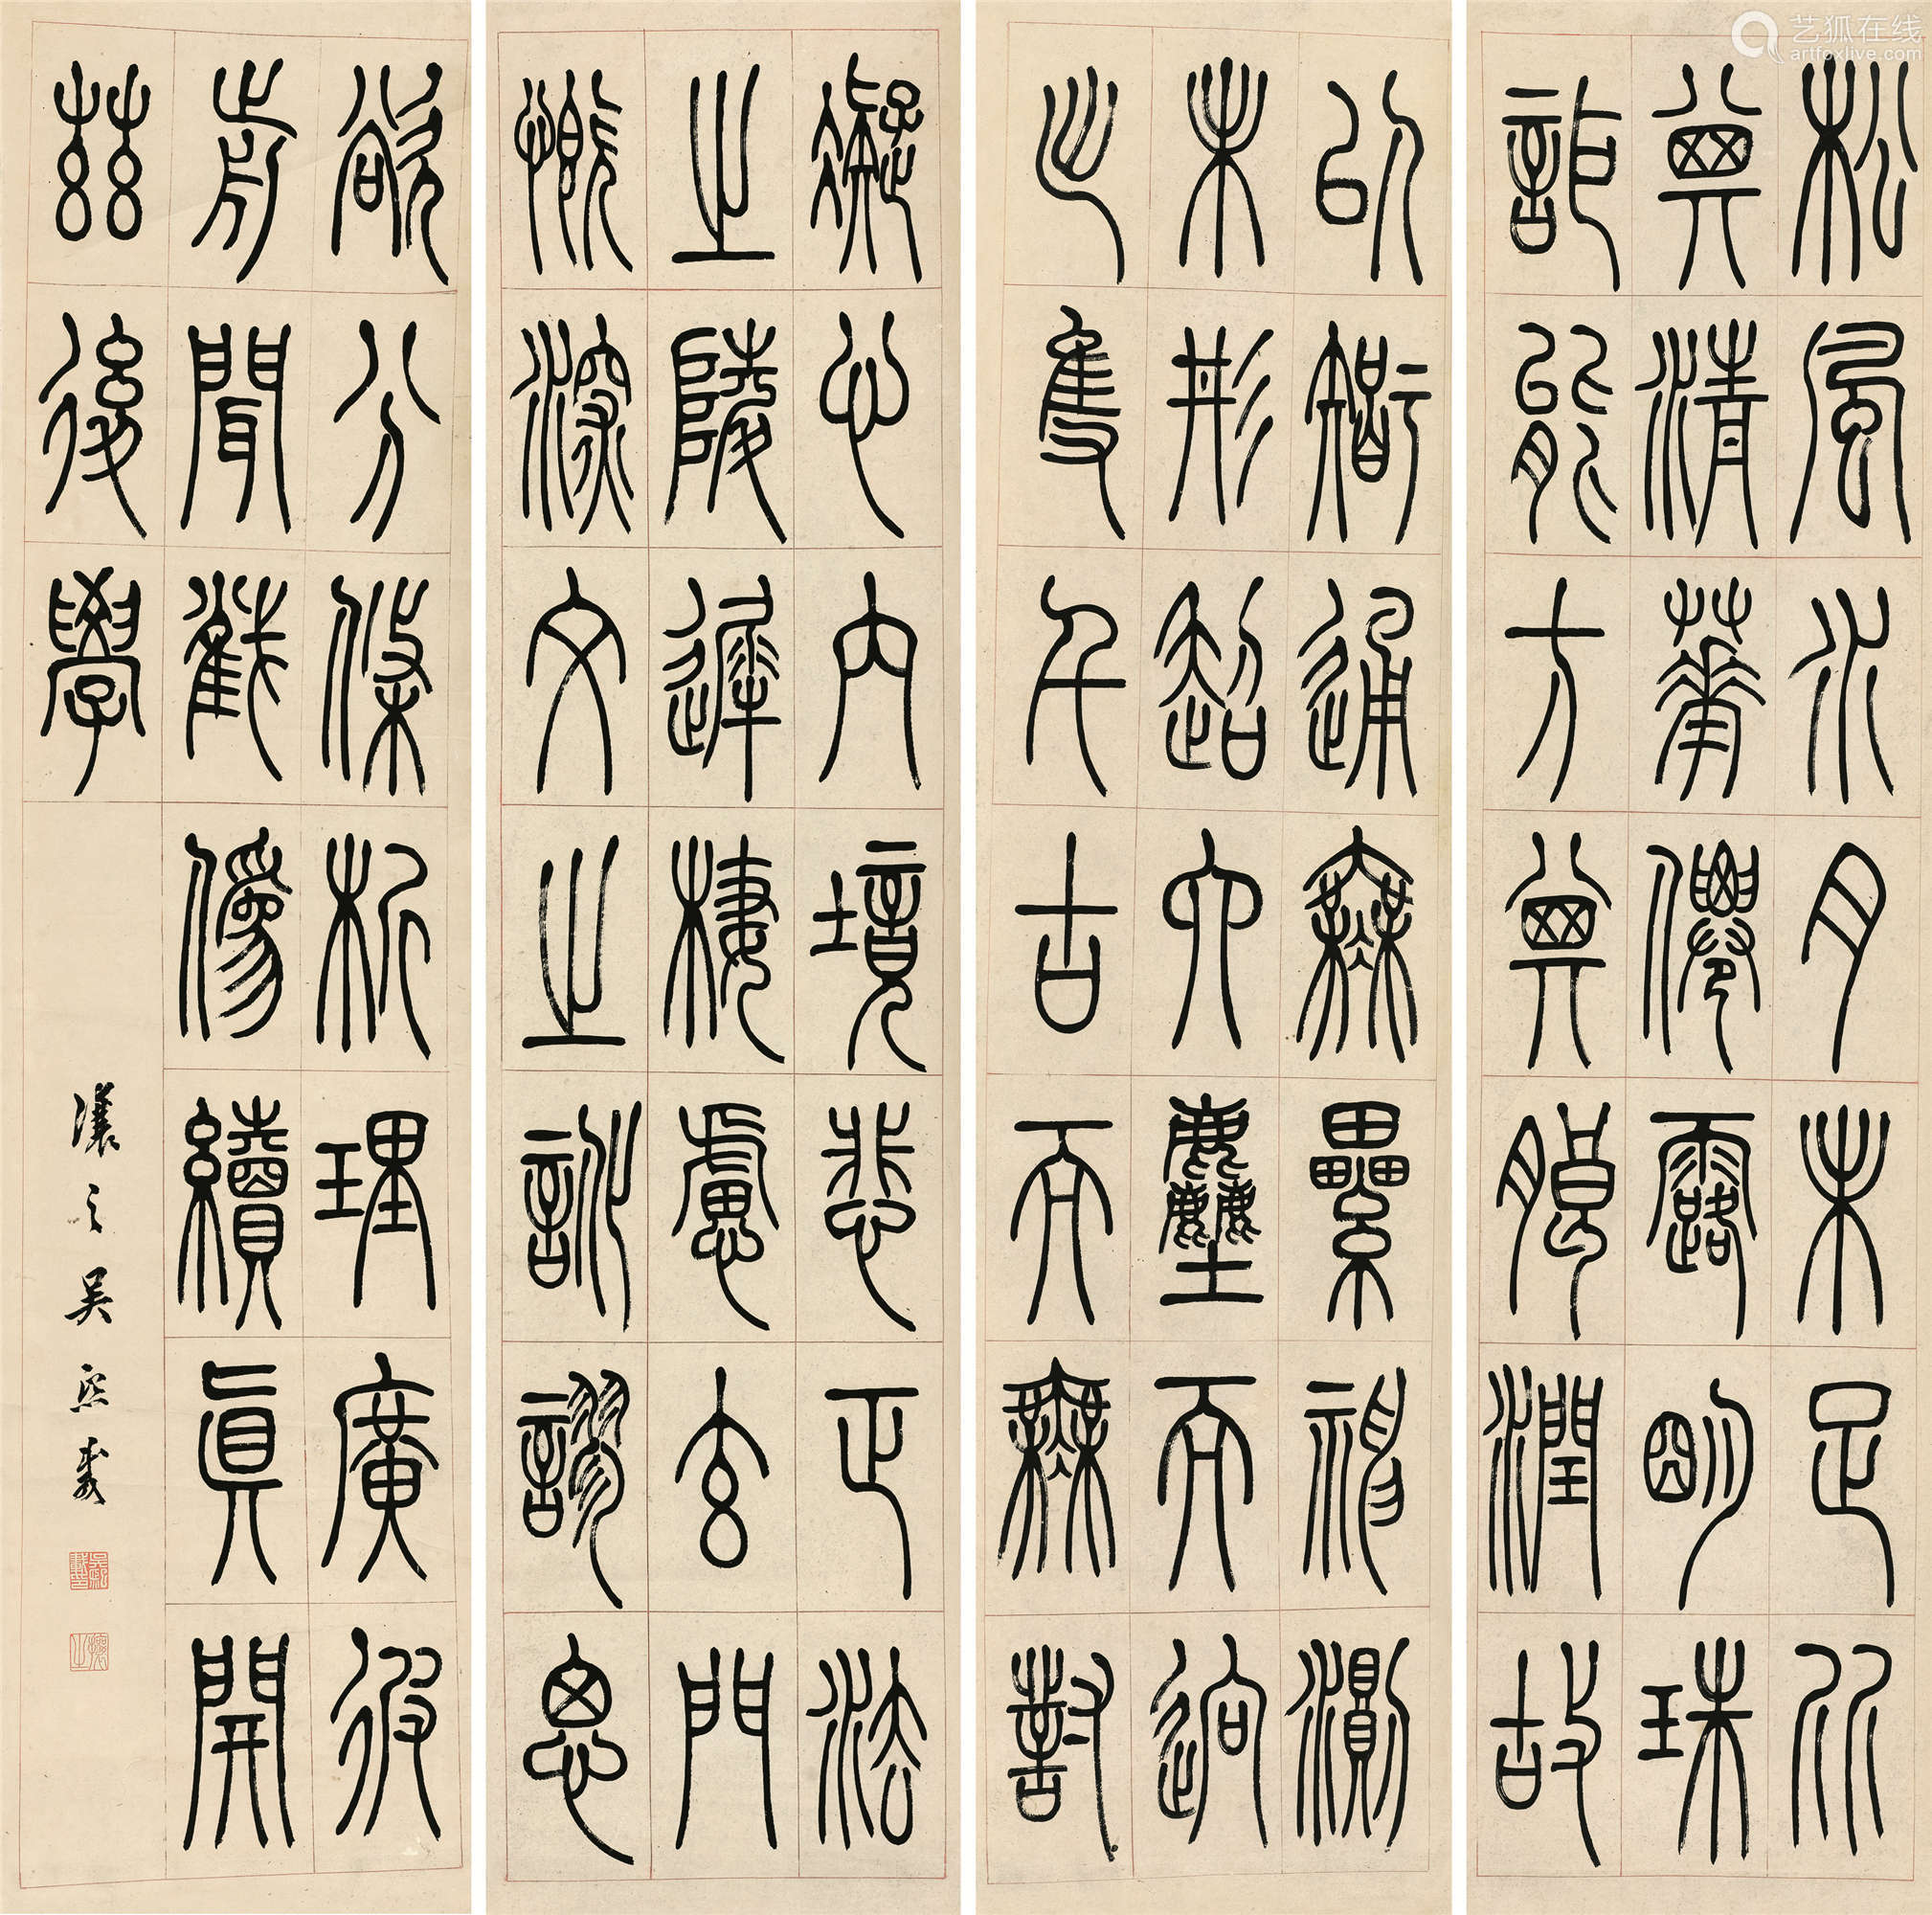 松風水月未足比
其清華僊露明珠
詎能方其朗潤故
以智通無累神測
未形超六塵而迥
出隻千古而無對
凝心內境悲正法
之陵遲棲慮玄門
慨深文之訛謬思
欲分條析理廣彼
前聞截僞續真開
茲後學
讓之吳熙載
艺狐在线
artfoxlive.com